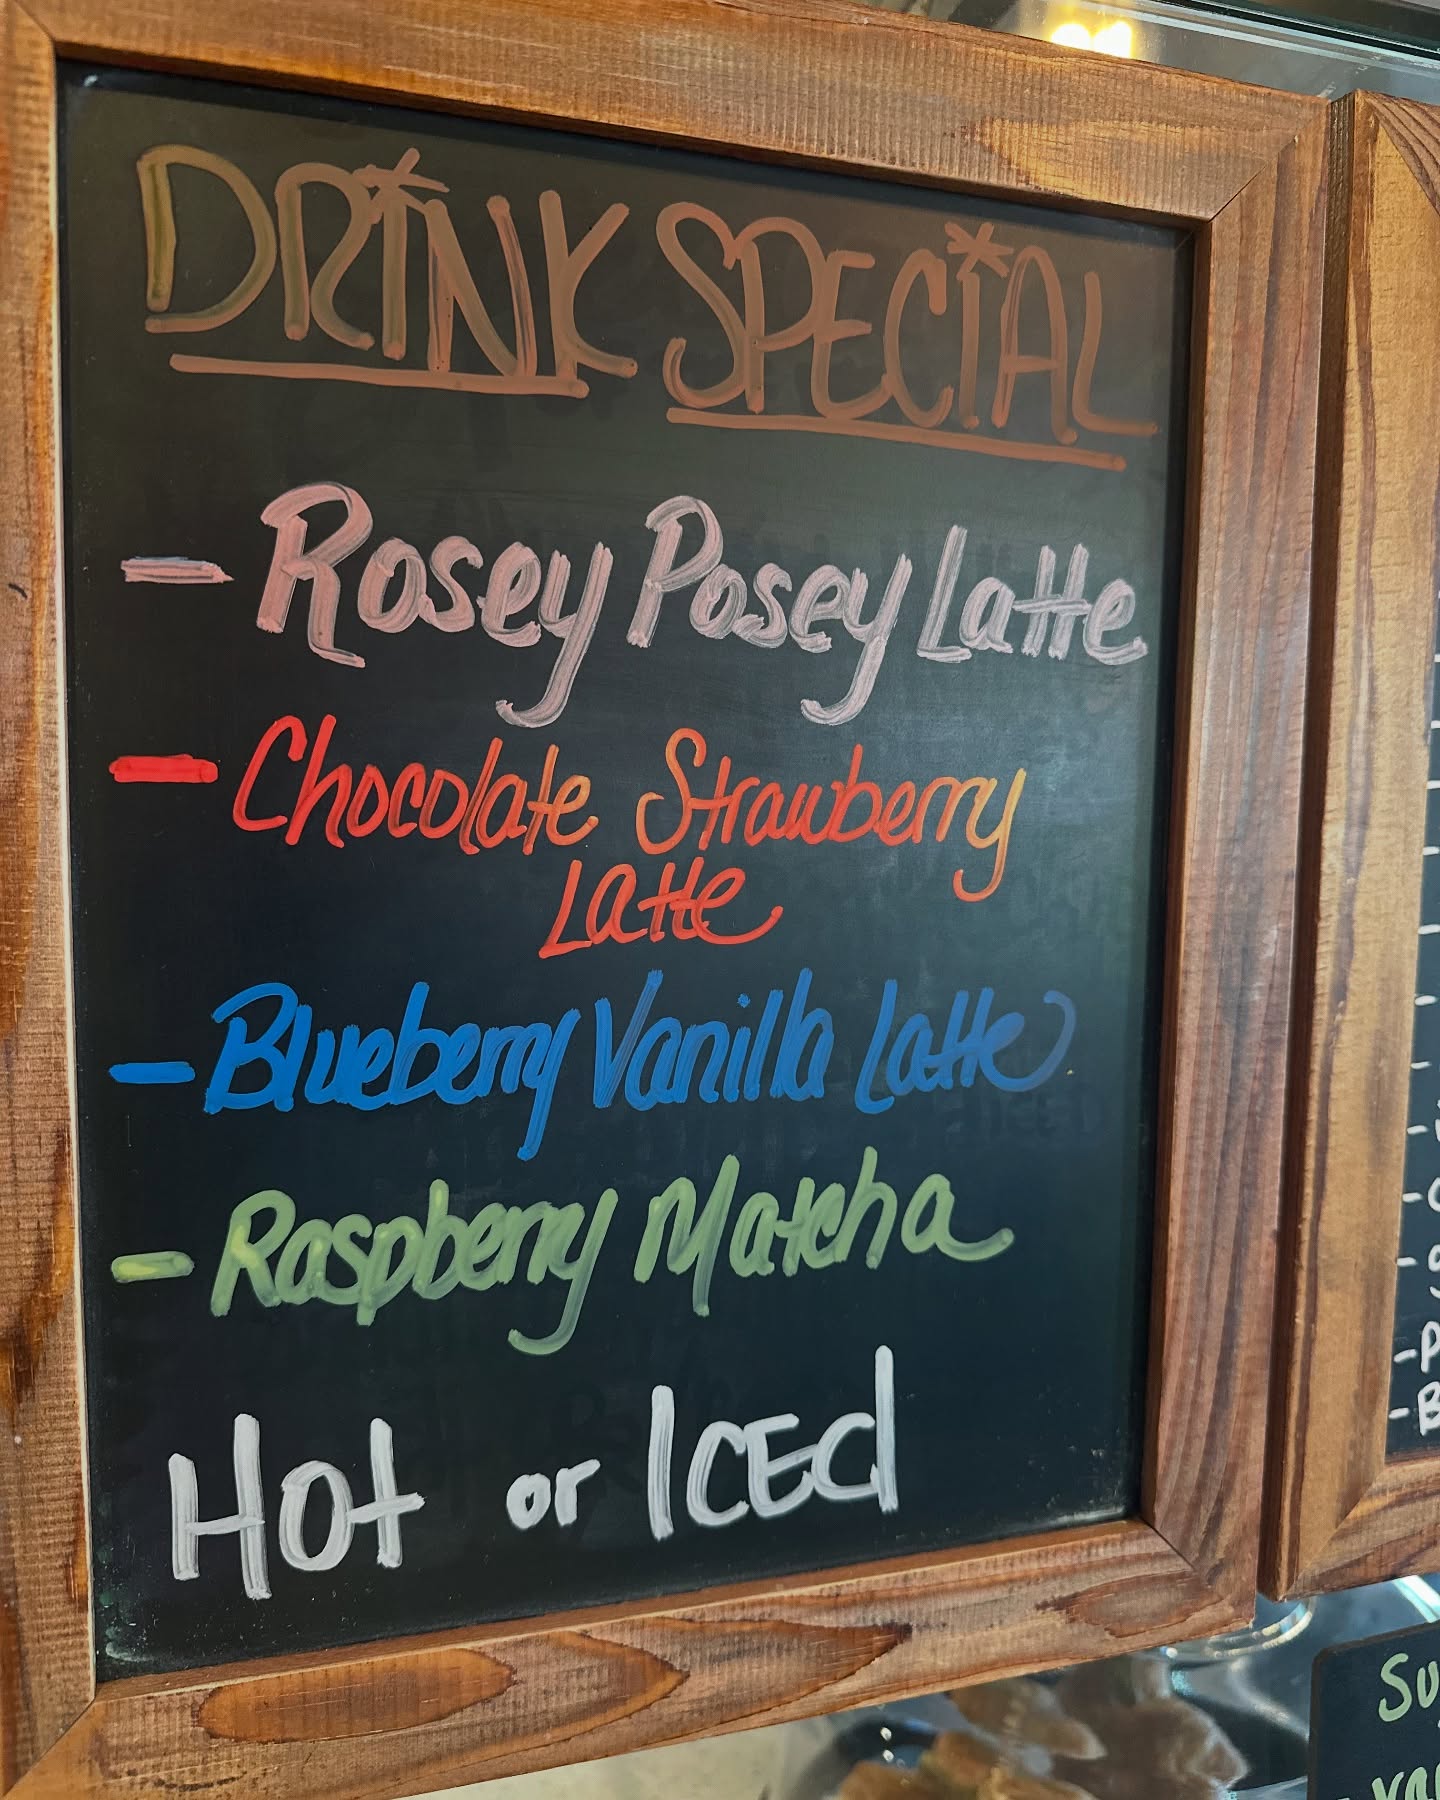 DRiNK SPECiAL
- Rosey Posey Latte
- Chocolate Strawberry
Latte
- Blueberry Vanilla Latte
- Raspberry Matcha
Hot or ICED